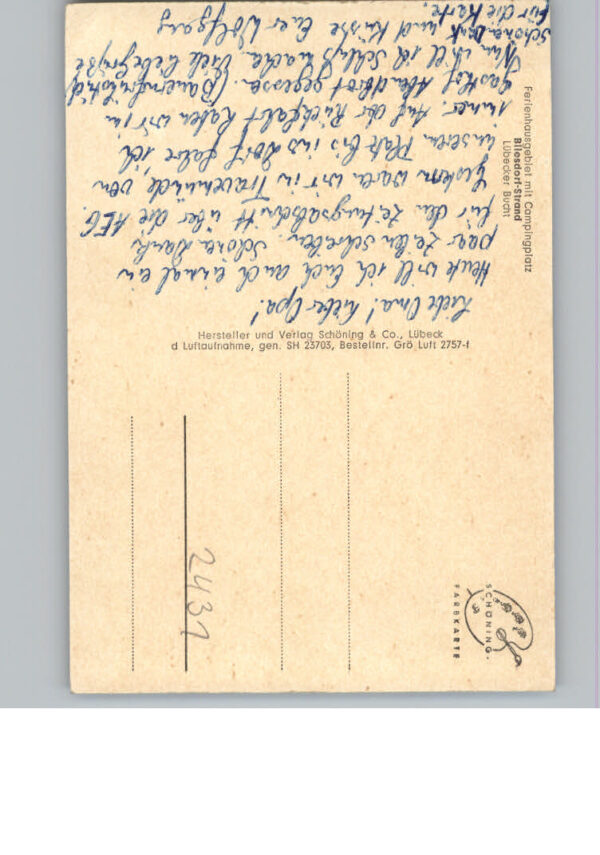 Liebe Oma! Lieber Opa!
Heute will ich Euch auch einmal ein
paar Zeilen schreiben. Schönen Dank
für den Zeitungsabschnitt über die AEG.
Gestern waren wir in Travemünde, von
unserem Platz bis ins Dorf fahre ich
immer. Auf der Rückfahrt haben wir im
Gasthof Abendbrot gegessen. (Bauernfrühstück)
Nun will ich Schluß machen. Viele liebe Grüße
und Küsse Euer Wolfgang
Schönen Dank
für die Karte.
Ferienhausgebiet mit Campingplatz
Bliesdorf-Strand
Lübecker Bucht
Hersteller und Verlag Schöning & Co., Lübeck
d Luftaufnahme, gen. SH 23703, Bestellnr. Grö Luft 2757-f
SCHÖNING.
FARBKARTE
2431